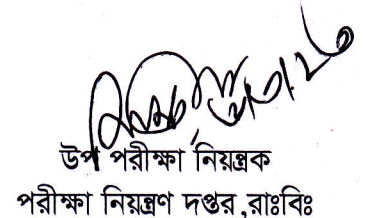 উপ পরীক্ষা নিয়ন্ত্রক
পরীক্ষা নিয়ন্ত্রণ দপ্তর,রাঃবিঃ